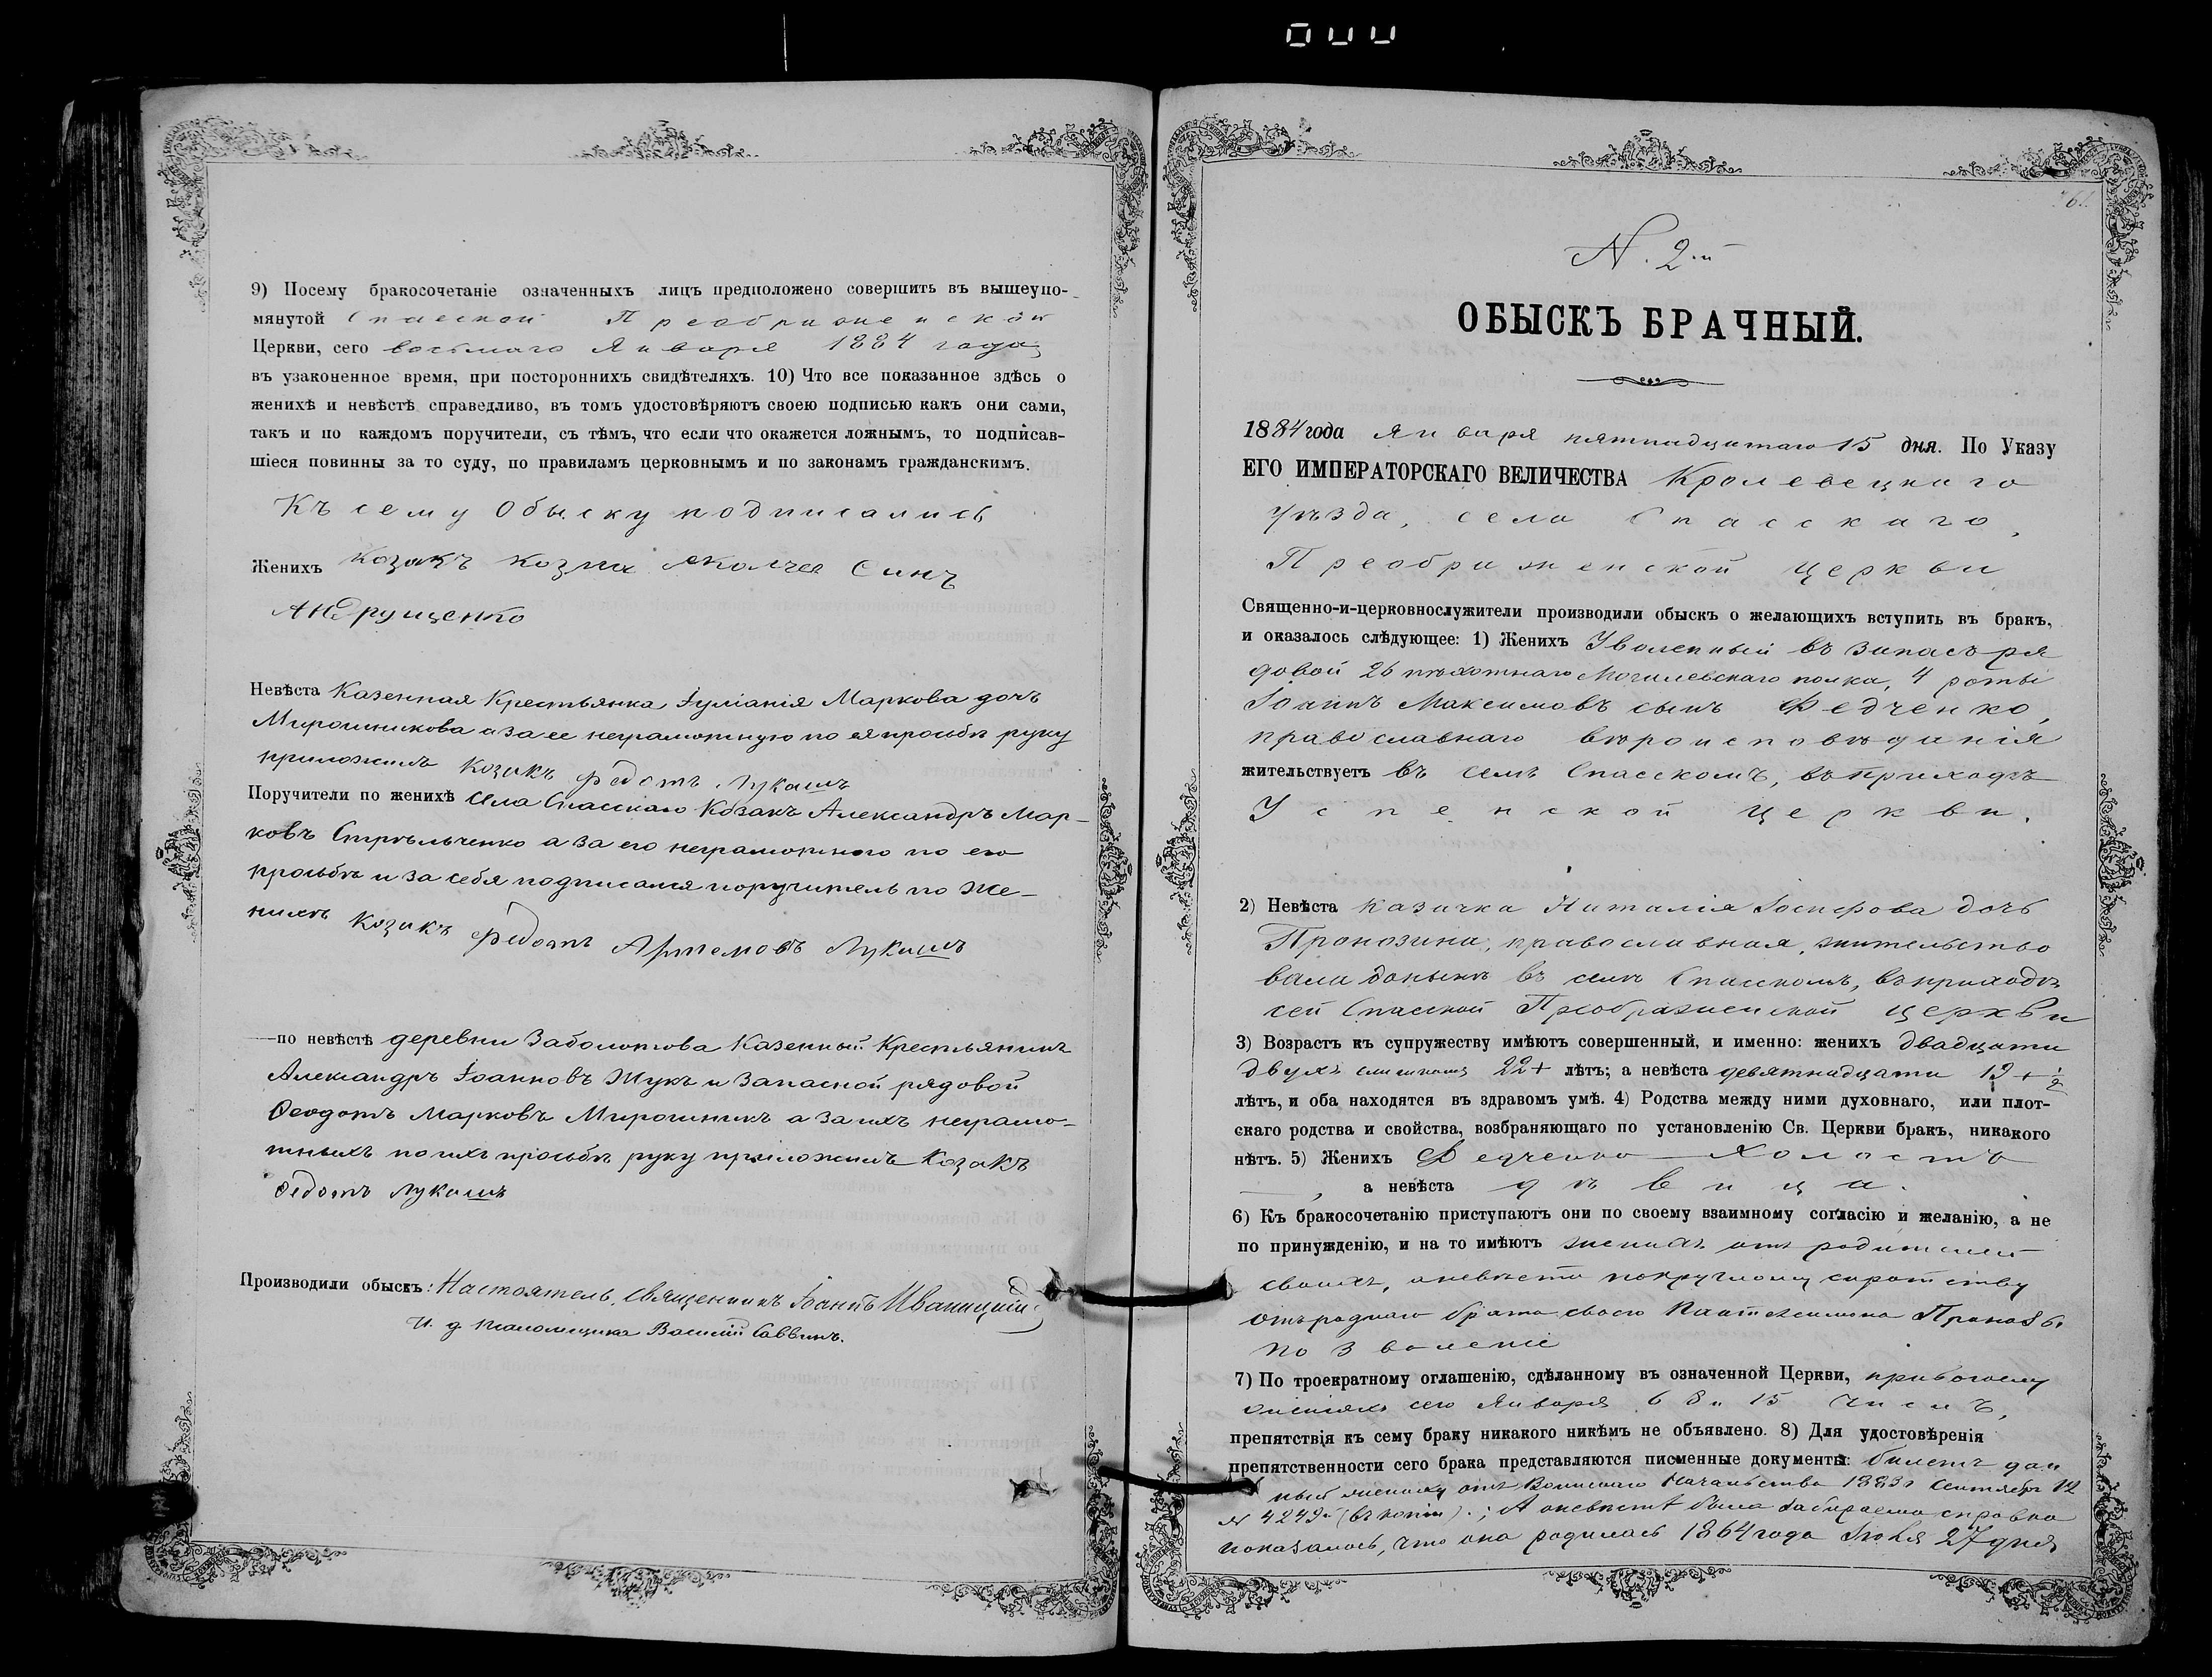 9) Посему бракосочетаніе означенныхъ лицъ предположено совершить въ вышеупо-
мянутой Спасской Преображенской
Церкви, сего восьмаго Января 1884 года
въ узаконенное время, при постороннихъ свидѣтеляхъ. 10) Что все показанное здѣсь о
женихѣ и невѣстѣ справедливо, въ томъ удостовѣряютъ своею подписью какъ они сами,
такъ и по каждомъ поручители, съ тѣмъ, что если что окажется ложнымъ, то подписав-
шіеся повинны за то суду, по правиламъ церковнымъ и по законамъ гражданскимъ.
Къ сему Обыску подписались
Женихъ Козакъ Козма Синъ
Андрущенко
Невѣста Казенная Крестьянка Іуліанія Маркова дочь
Мирошникова а за ее неграмотную по ея просьбѣ руку
приложилъ Козакъ Федотъ Лукашъ
Поручители по женихѣ села Спасскаго Козакъ Александръ Мар-
ковъ Стрѣльченко а за его неграмотного по его
просьбѣ и за себя подписался поручитель по же-
нихѣ Козакъ Федотъ Артемовъ Лукашъ
по невѣстѣ деревни Заболотова Казенный Крестьянинъ
Александръ Іоанновъ Жукъ и Запасной рядовой
Ѳеодотъ Марковъ Мирошникъ а за ихъ неграмо-
тныхъ по ихъ просьбѣ руку приложилъ Козакъ
Федотъ Лукашъ
Производили обыскъ: Настоятель, Священникъ Іоаннъ Иваницкій
И. д. псаломщика Василій Саввинъ.
N. 2.й
ОБЫСКЪ БРАЧНЫЙ.
1884 года Января пятнадцатаго 15 дня. По Указу
ЕГО ИМПЕРАТОРСКАГО ВЕЛИЧЕСТВА Кролевецкаго
уѣзда, села Спасскаго,
Преображенской церкви
Священно-и-церковнослужители производили обыскъ о желающихъ вступить въ бракъ,
и оказалось слѣдующее: 1) Женихъ Уволенный въ запасъ ря
довой 26 пѣхотнаго Могилевскаго полка, 4 роты
Іоаннъ Максимовъ сынъ Федченко,
православнаго вѣроисповѣданія
жительствуетъ въ селѣ Спасскомъ, въ приходѣ
Успенской церкви.
2) Невѣста казачка Наталія Іосифова дочь
Пронозина, православная, жительство
вала донынѣ въ селѣ Спасскомъ, въ приходѣ
сей Спасской Преображенской церкви
3) Возрастъ къ супружеству имѣютъ совершенный, и именно: женихъ двадцати
двухъ слишкомъ 22+ лѣтъ; а невѣста девятнадцати 19 + ½
лѣтъ, и оба находятся въ здравомъ умѣ. 4) Родства между ними духовнаго, или плот-
скаго родства и свойства, возбраняющаго по установленію Св. Церкви бракъ, никакого
нѣтъ. 5) Женихъ Федченко холостъ
, а невѣста дѣвица.
6) Къ бракосочетанію приступаютъ они по своему взаимному согласію и желанію, а не
по принужденію, и на то имѣютъ женихъ отъ родителей
своихъ, а невѣста по круглому сиротству
отъ роднаго брата своего Проноз.
позволеніе
7) По троекратному оглашенію, сдѣланному въ означенной Церкви,
сего Января 6 8 и 15 чиселъ,
препятствія къ сему браку никакого никѣмъ не объявлено. 8) Для удостовѣренія
препятственности сего брака представляются писменные документы: билетъ дан
ный жениху отъ Воинскаго Начальства 1883 г Сентября 12
N 4249й (въ копіи).; А о невѣстѣ была забираема справка
показалось, что она родилась 1864 года Іюля 27 дня